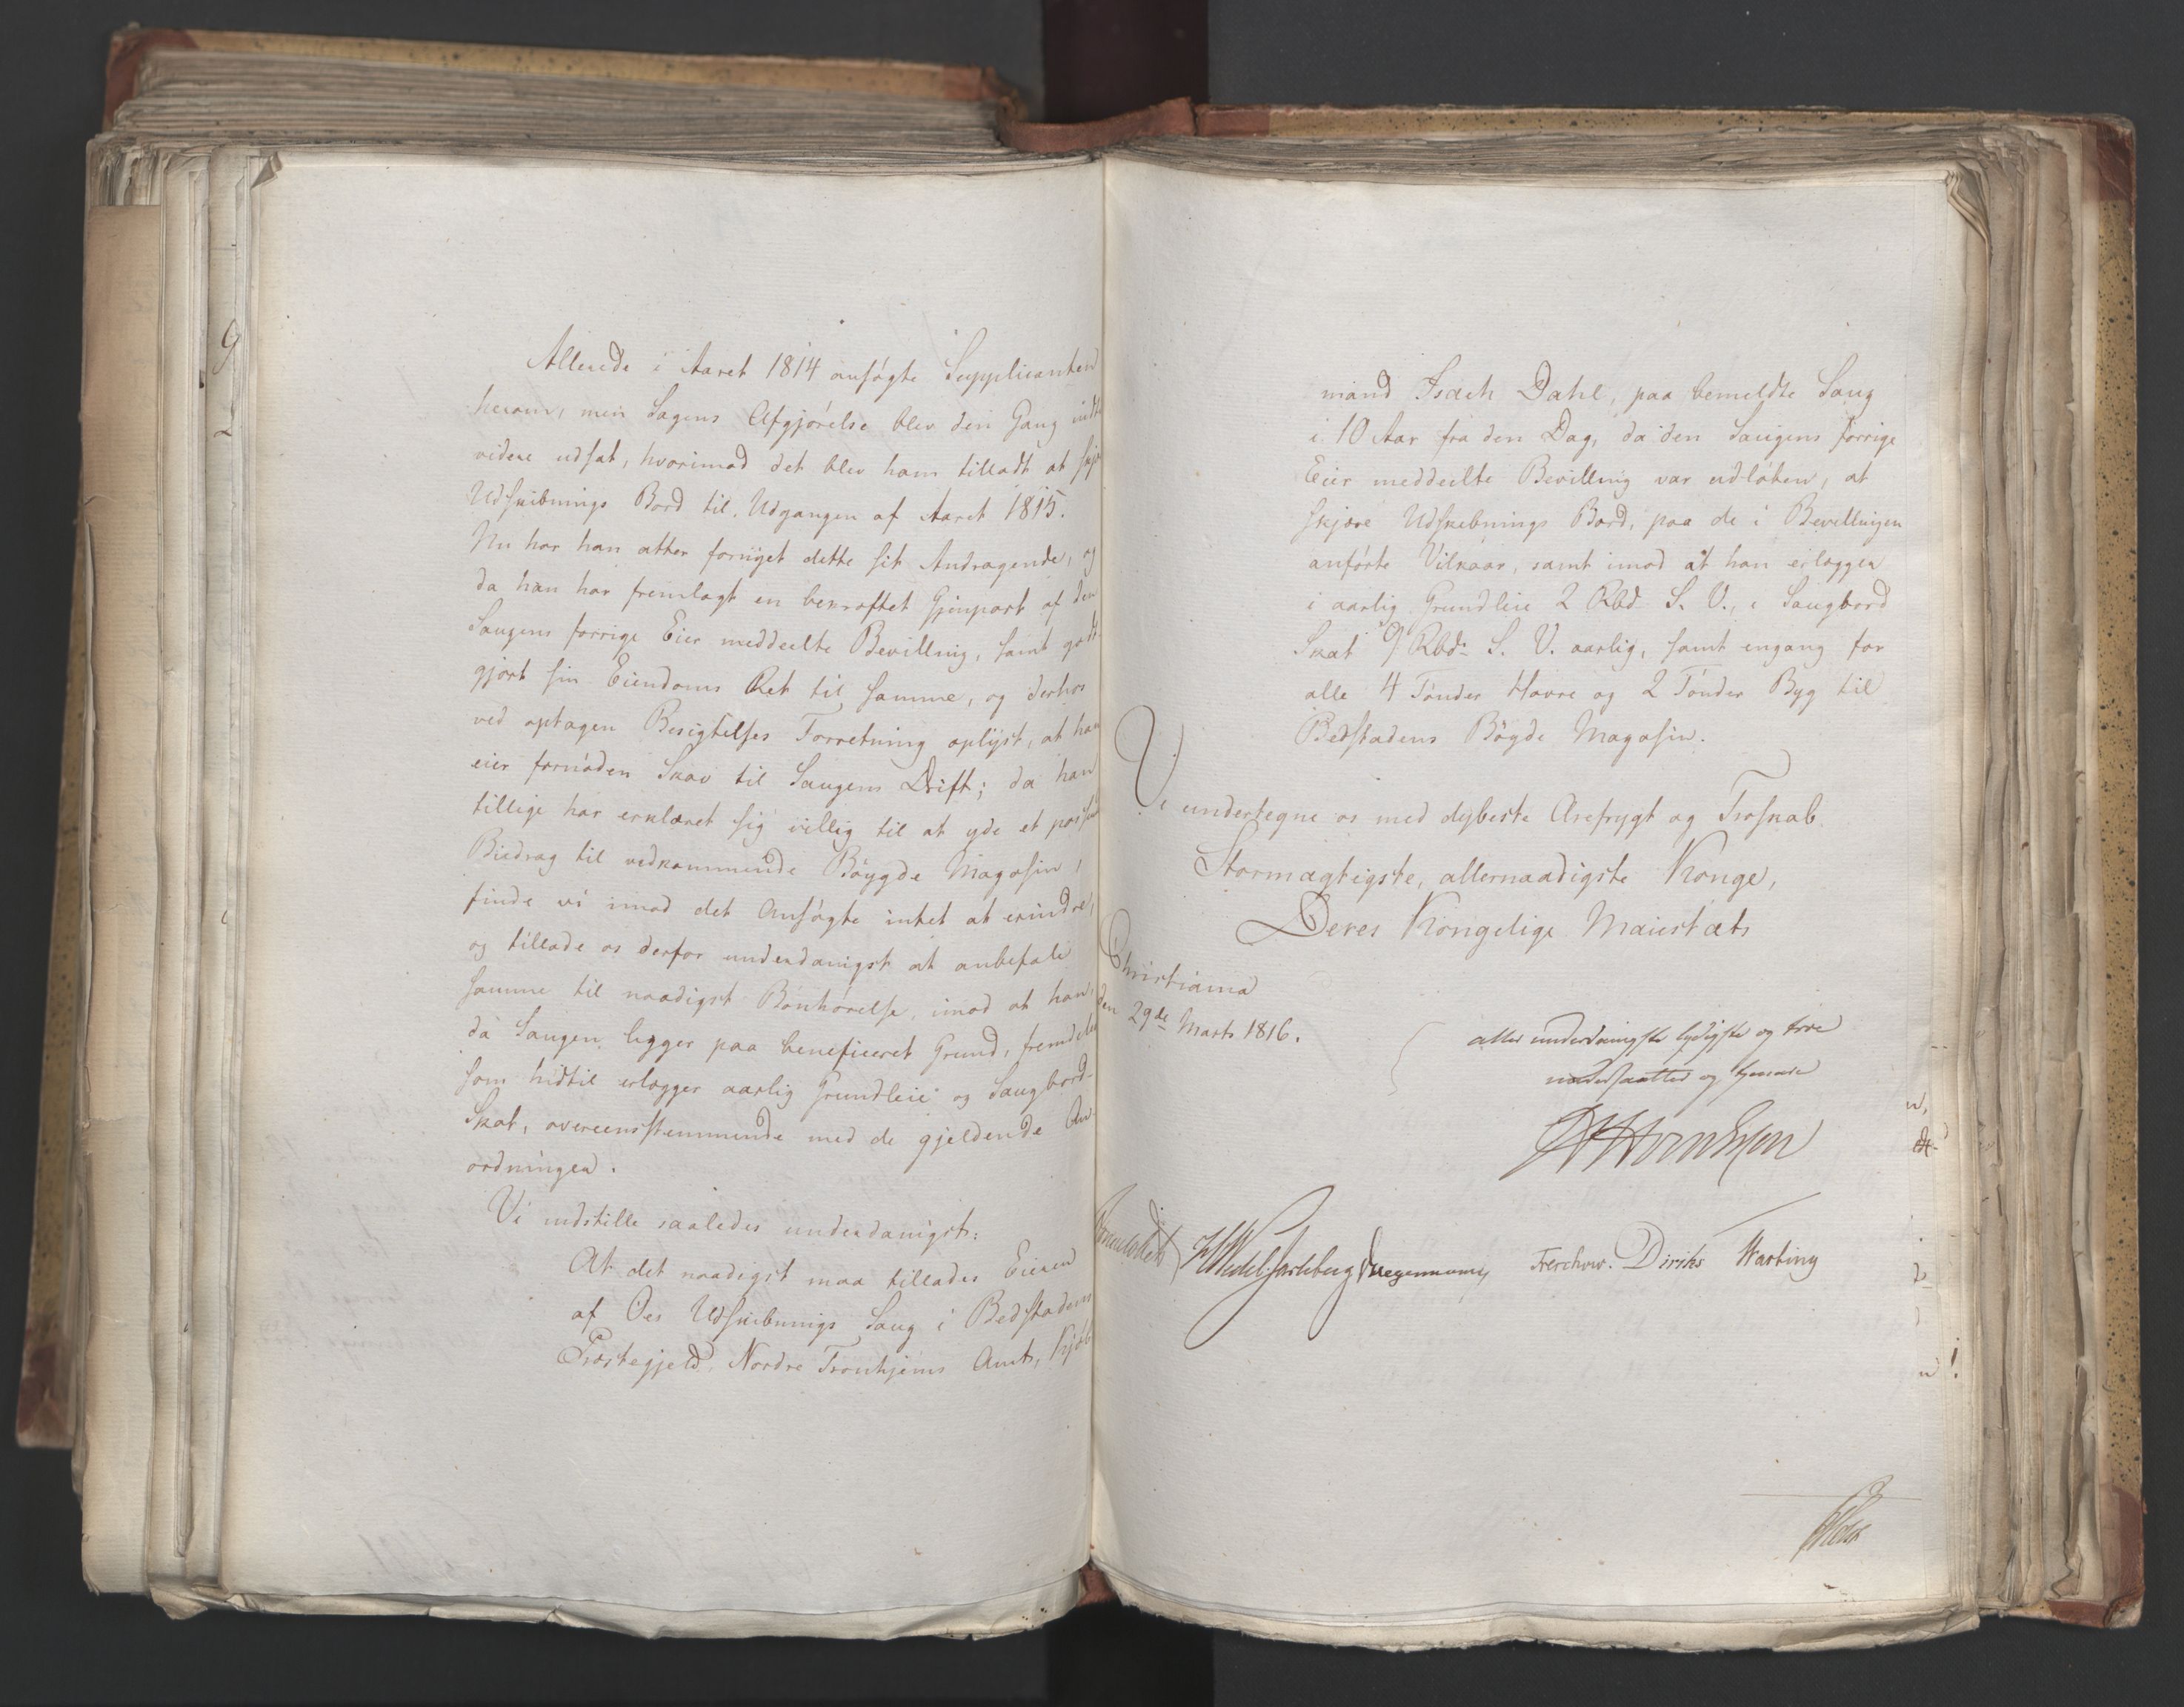 Allerede i Aaret 1814 ansøgte Supplicanten
herom, men Sagens Afgjørelse blev den Gang indtil
videre udsat, hvorimod det blev ham tilladt at skjære
Udskibnings Bord til Udgangen af Aaret 1815.
Nu har han atter fornyet dette sit Andragende, og
da han har fremlagt en bekræftet Gjenpart af den
Saugens forrige Eier meddeelte Bevilling, samt godt-
gjort sin Eiendoms Ret til samme, og derhos
ved optagen Besigtelses Forretning oplyst, at han
eier fornøden Skov til Saugens Drift; da han
tillige har erklæret sig villig til at yde et passende
Biedrag til vedkommende Bøygde Magasin,
finde vi imod det Ansøgte intet at erindre,
og tillade os derfor underdanigst at anbefale
samme til naadigst Bønhørelse, imod at han,
da Saugen ligger paa beneficeret Grund, fremdeles
som hidtil erlægger aarlig Grundleie og Saugbord-
Skat, overeensstemmende med de gjeldende An-
ordninger.
Vi indstille saaledes underdanigst:
At det naadigst maa tillades Eieren
af Øes Udskibnings Saug i Bedstadens
Præstegjeld, Nordre Tronhjems Amt, Kjøb-
mand Isach Dahl, paa bemeldte Saug
i 10 Aar fra den Dag, da den Saugens forrige
Eier meddeelte Bevilling var udløben, at
skjære Udskibnings Bord, paa de i Bevillingen
anførte Vilkaar, samt imod at han erlægger
i aarlig Grundleie 2 Rbd. S. V., i Saugbord
Skat 9 Rbd. S. V. aarlig, samt engang for
alle 4 Tønder Havre og 2 Tønder Byg til
Bedstadens Bøygde Magasin.
Vi undertegne os med dybeste Ærefrygt og Troskab
Stormægtigste, allernaadigste Konge,
Deres Kongelige Maiestæts
Christiania
den 29de Marts 1816.
allerunderdanigste lydigste og troe
undersaatter og tjenere
Sommerfeldt HWedel Jarlsberg Krogh Treschow. Diriks Hasting